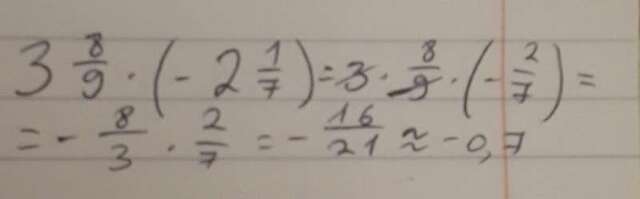 3 8/9 · (- 2 1/7) = 3 · 8/9 · (- 2/7) =
= - 8/3 · 2/7 = - 16/21 ≈ -0,7